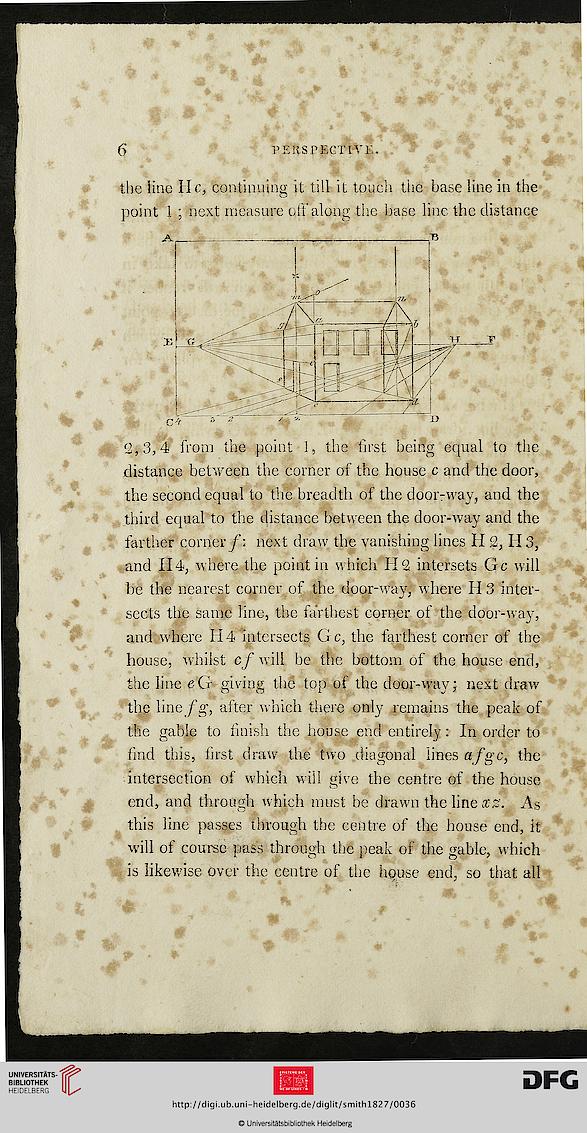 6
PERSPECTIVE.
the line H c, continuing it till it touch the base line in the
point 1 ; next measure off along the base line the distance
A B
m o n
g a b
E G H F
e
f c d
C 4 3 2 1 z D
2, 3, 4 from the point 1, the first being equal to the
distance between the corner of the house c and the door,
the second equal to the breadth of the door-way, and the
third equal to the distance between the door-way and the
farther corner f : next draw the vanishing lines H 2, H 3,
and H 4, where the point in which H 2 intersets G c will
be the nearest corner of the door-way, where H 3 inter-
sects the same line, the farthest corner of the door-way,
and where H 4 intersects G c, the farthest corner of the
house, whilst c f will be the bottom of the house end,
the line e G giving the top of the door-way; next draw
the line f g, after which there only remains the peak of
the gable to finish the house end entirely: In order to
find this, first draw the two diagonal lines a f g c, the
intersection of which will give the centre of the house
end, and through which must be drawn the line x z. As
this line passes through the centre of the house end, it
will of course pass through the peak of the gable, which
is likewise over the centre of the house end, so that all
UNIVERSITÄTS-
BIBLIOTHEK
HEIDELBERG
DFG
http://digi.ub.uni-heidelberg.de/diglit/smith1827/0036
© Universitätsbibliothek Heidelberg